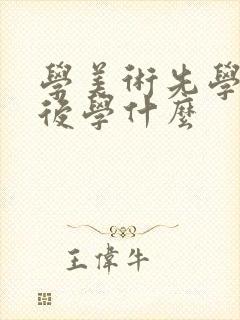 學美術先學
後學什麼
王偉牛